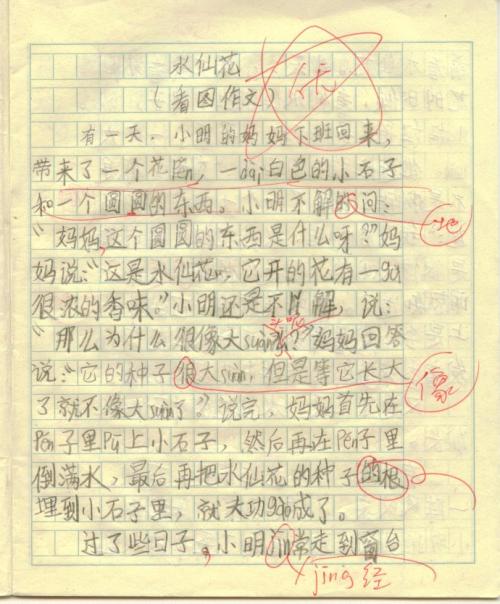 水仙花
（看图作文）
有一天，小明的妈妈下班回来，
带来了一个花pén，一dài白色的小石子
和一个圆圆的东西。小明不解的问：
地
“妈妈，这个圆圆的东西是什么呀？”妈
妈说：“这是水仙花，它开的花有一gǔ
很浓的香味。”小明还是不解，说：
“那么为什么很像大suàn呢？”妈妈回答
说：“它的种子很大suàn，但是等它长大
像
了就不像大suàn了？”说完，妈妈首先在
Pén子里Pū上小石子，然后再在Pén子里
倒满水，最后再把水仙花的种子的根
埋到小石子里，就大功gào成了。
过了些日子，小明jīn常走到窗台
jing 经